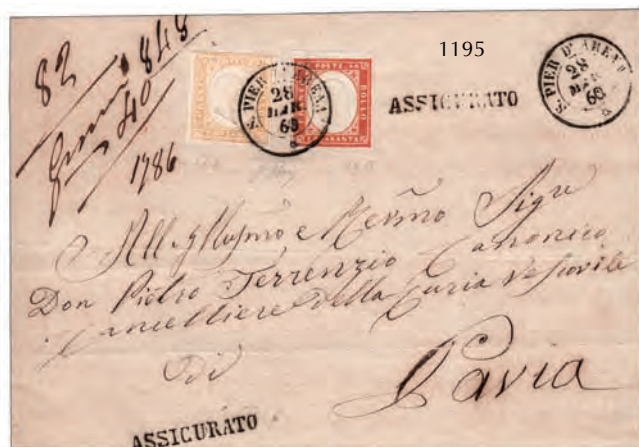 1195
82
848
40
1786
POSTE
BOLLO
QUARANTA
S. PIER D'ARENA
28
MAR
63
ASSICURATO
S. PIER D'ARENA
28
MAR
63
All Illusmo e Revmo Sigre
Don Pietro Terrenzio Canonico
Cancelliere della Curia Vescovile
di
Pavia
ASSICURATO